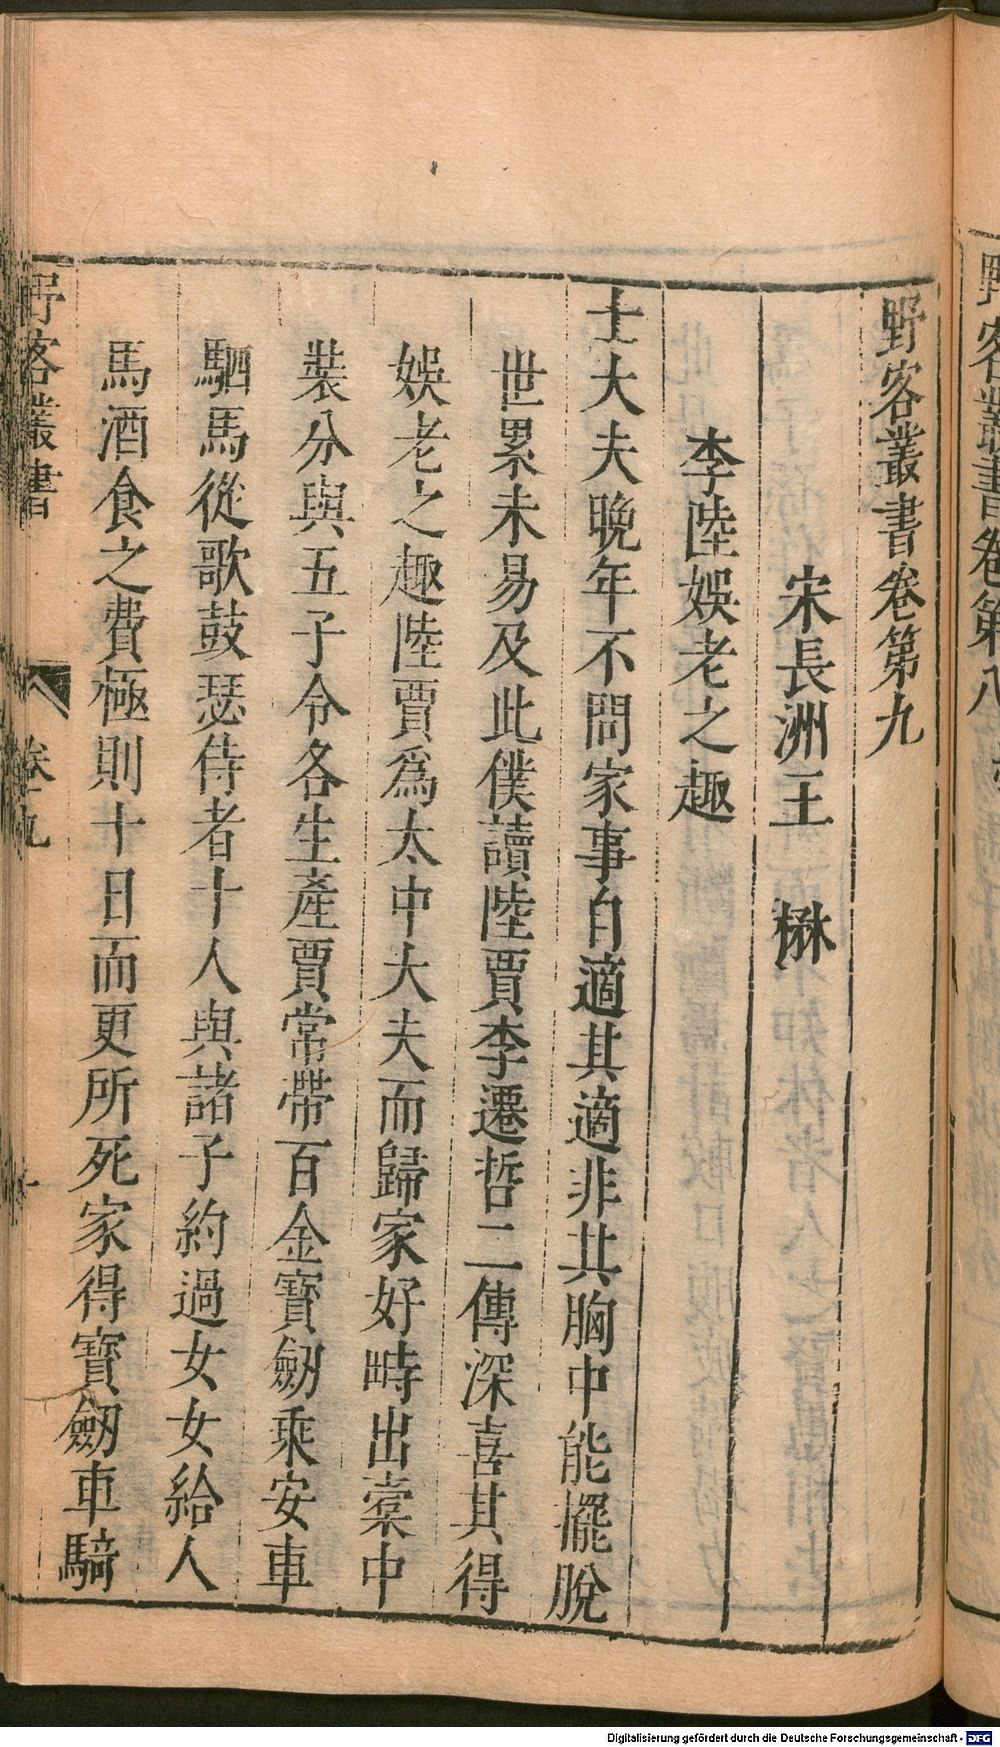 野客叢書卷第九
宋長洲王　楙
李陸娛老之趣
士大夫晩年不問家事自適其適非其胸中能擺脫
世累未易及此僕讀陸賈李遷哲二傳深喜其得
娛老之趣陸賈爲太中大夫而歸家好畤出橐中
裝分與五子令各生產賈常帶百金寶劒乘安車
駟馬從歌鼓瑟侍者十人與諸子約過女女給人
馬酒食之費極則十日而更所死家得寶劒車騎
野客叢書
卷九
一
野客叢書卷第八
Digitalisierung gefördert durch die Deutsche Forschungsgemeinschaft - DFG